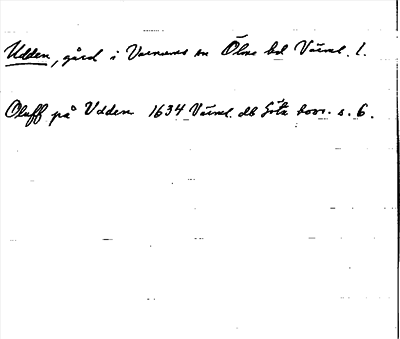 Udden, gård i Varnums sn Ölme hd Värml. l.
Oluff på Udden 1634 Värml. db Göta hovr. s. 6.